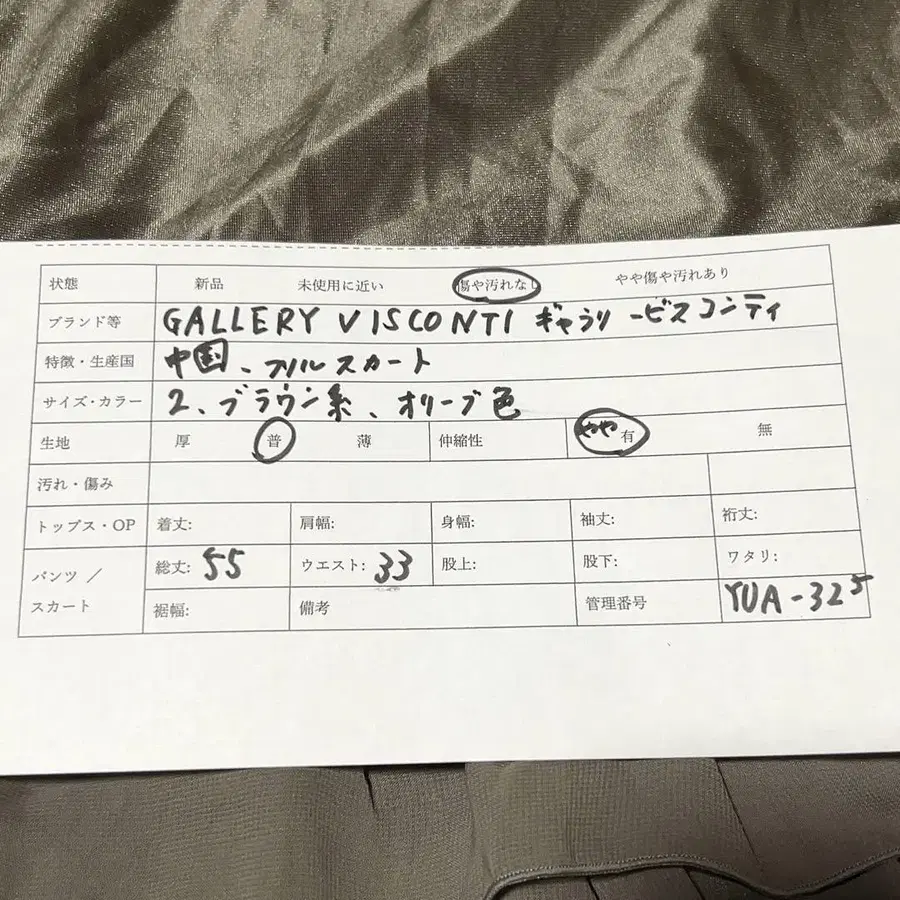 状態 新品 未使用に近い 傷や汚れなし やや傷や汚れあり
ブランド等 GALLERY VISCONTI ギャラリービスコンティ
特徴・生産国 中国、フリルスカート
サイズ・カラー 2、ブラウン系、オリーブ色
生地 厚 普 薄 伸縮性 やや有 無
汚れ・傷み
トップス・OP 着丈: 肩幅: 身幅: 袖丈: 裄丈:
パンツ／スカート 総丈: 55 ウエスト: 33 股上: 股下: ワタリ:
裾幅: 備考 管理番号 YUA-325